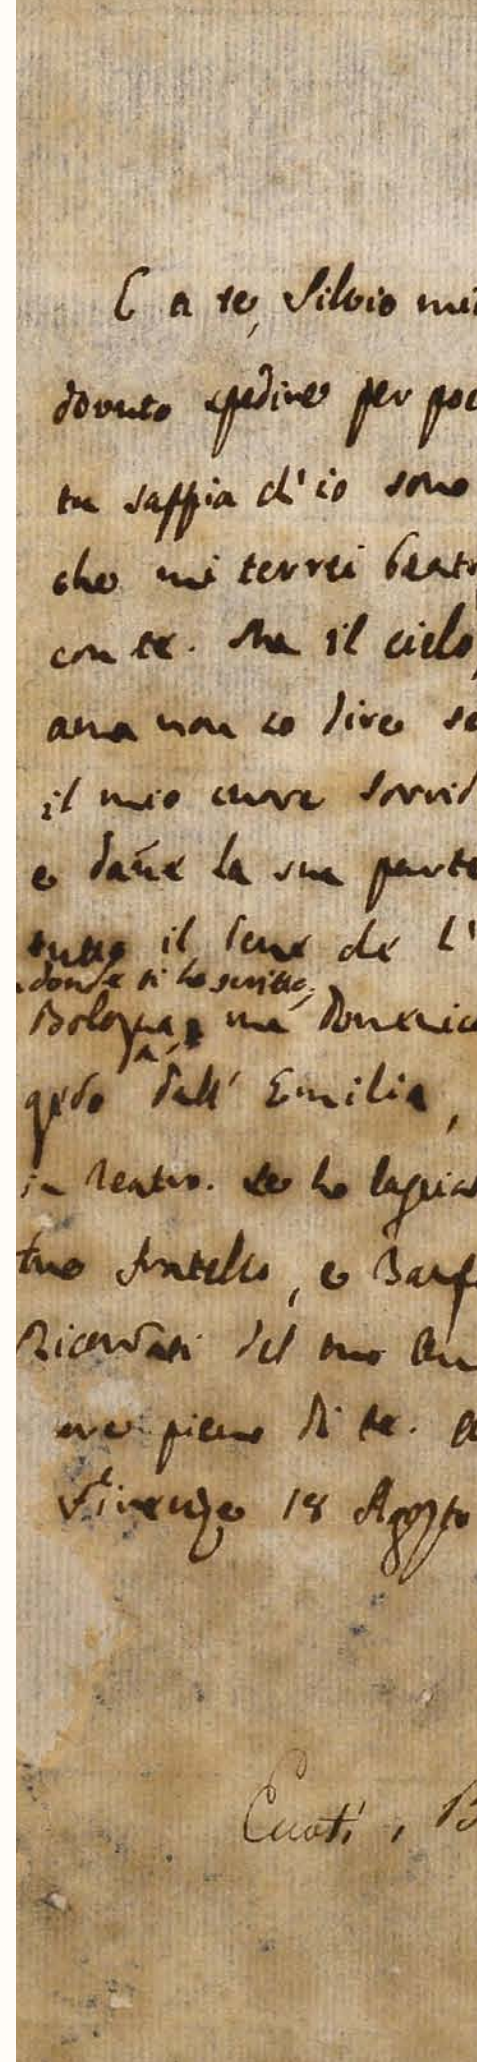 E a te, Silvio mi
dovuto spedire per poc
tu sappia ch'io sono
che mi terrei beat
con te. Ma il cielo,
ana non so dire se
il mio cuore sorrid
e darne la sua parte
tutto il bene che l'
donde ti ho scritto,
Bologna, ma Domenica
gedo dall' Emilia,
in teatro. Se ho lascia
tuo fratello, e Barf
Ricordati del tuo Am
ore pieno di te. A
Firenze 18 Agosto
, B